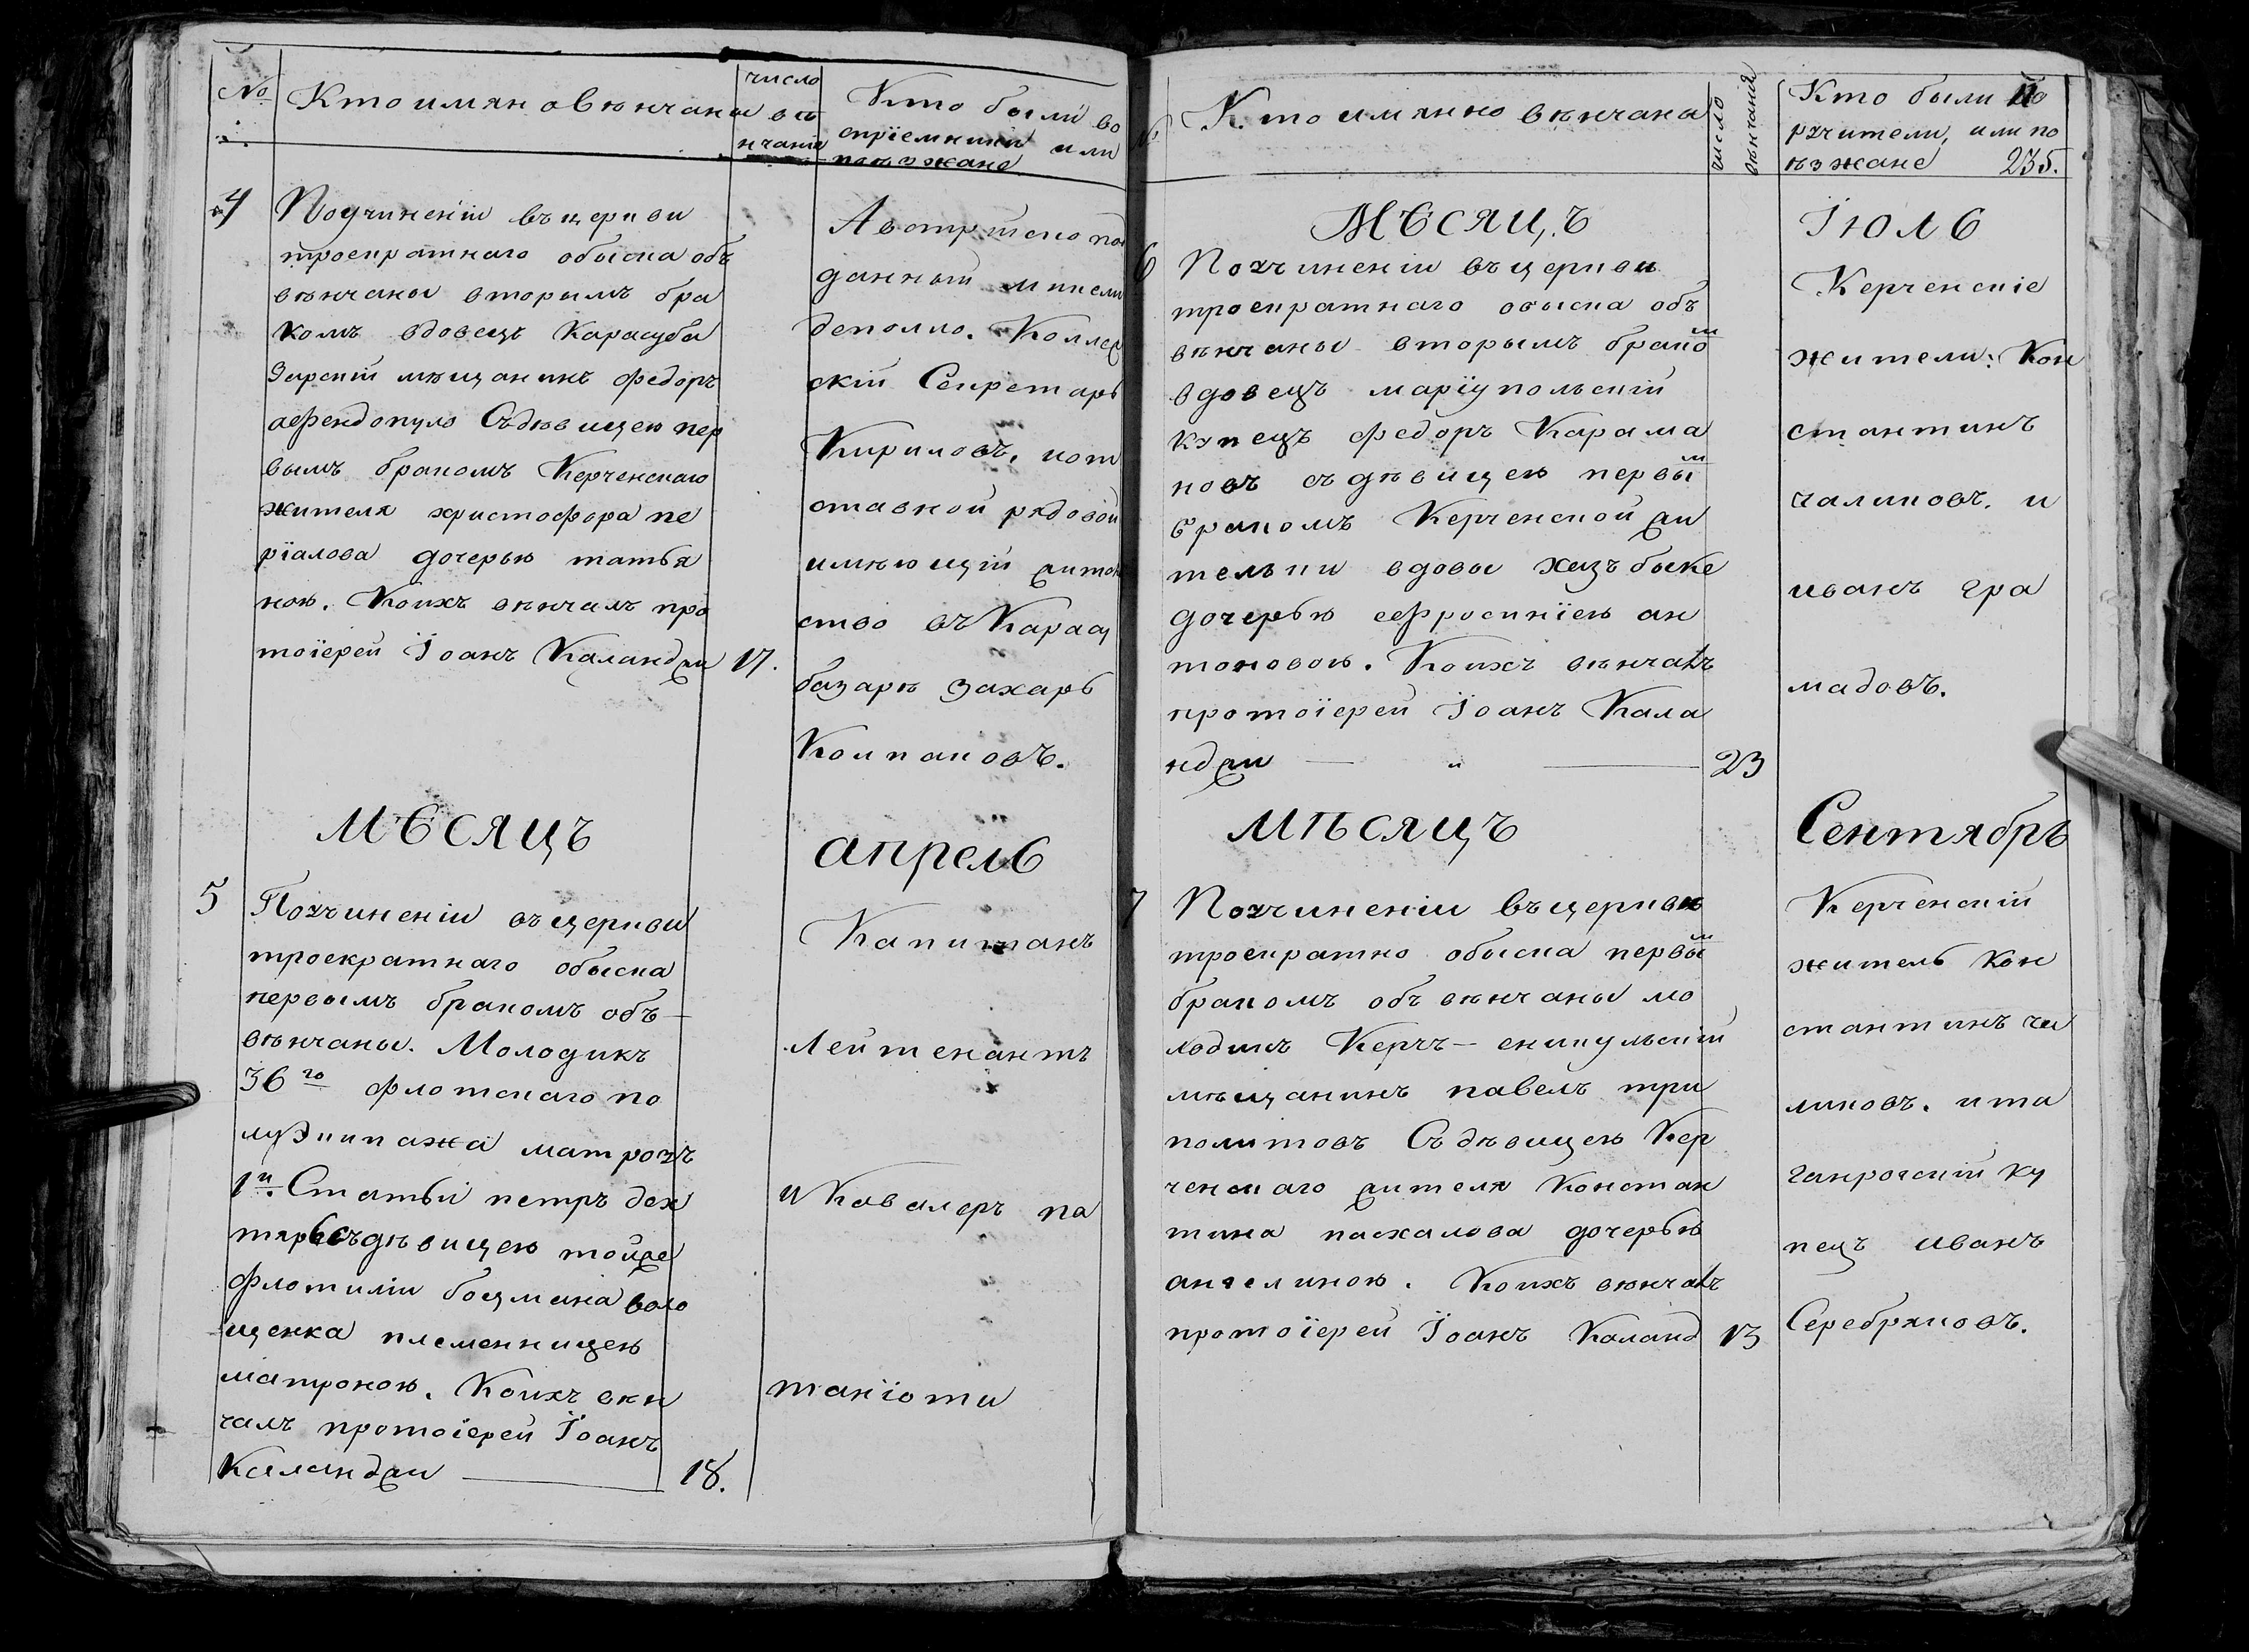 №
Кто имянно вѣнчаны
число
вѣ
нчанія
Кто были во
спріемники или
поѣзжане
4
Поучиненіи въ церкви
троекратнаго обыска объ
вѣнчаны вторымъ бра
комъ вдовецъ Карасуба
зарскій мѣщанинъ федоръ
афендопуло Съдѣвицею пер
вымъ бракомъ Керченскаго
жителя христофора пе
ріалова дочерью татья
ною. Коихъ вѣнчалъ про
тоіерей Іоанъ Каланджи 17.
Австрійско под
данный микели
деполло. Коллеж
скій Секретарь
Кириловъ, иот
ставной рядовой
имѣющій жител
ство въ Карасу
базарѣ Захаръ
Колпаковъ.
Мѣсяцъ
апрель
5
Поучиненіи въ церкви
троекратнаго обыска
первымъ бракомъ объ-
вѣнчаны. Молодикъ
36го флотскаго по
луэкипажа матрозъ
1й. Статьи петръ дех
тярь съдѣвицею тойже
флотиліи боцмана воло
щенка племенницею
матроною. Коихъ вѣн
чалъ протоіерей Іоанъ
Каланджи 18.
Капитанъ
Лейтенантъ
и Кавалеръ па
таніоти
№
Кто имянно вѣнчаны
число
вѣнчанія
Кто были по
ручители, или по
ѣзжане 235.
Мѣсяцъ
Іюль
6
Поучиненіи въ церкви
троекратнаго обыска объ
вѣнчаны вторымъ бракомъ
вдовецъ маріупольскій
купецъ федоръ Карама
новъ съ дѣвицею первым
бракомъ Керченской жи
тельки вдовы хазъ быке
дочерью ефросиніею ан
тоновою. Коихъ вѣнчалъ
протоіерей Іоанъ Кала
нджи — „ — 23
Керченскіе
жители: Кон
стантинъ
чаликовъ. и
иванъ гра
мадовъ.
Мѣсяцъ
Сентябрь
7
Поучиненіи въ церкви
троекратно обыска первым
бракомъ объ вѣнчаны мо
лодикъ Керчъ-еникульскій
мѣщанинъ павелъ три
политовъ Съ дѣвицею Кер
ченскаго жителя Констан
тина пасхалова дочерью
ангелиною. Коихъ вѣнчалъ
протоіерей Іоанъ Каланд 13
Керченскій
житель Кон
стантинъ ча
ликовъ. ита
ганрогскій ку
пецъ иванъ
Серебряковъ.